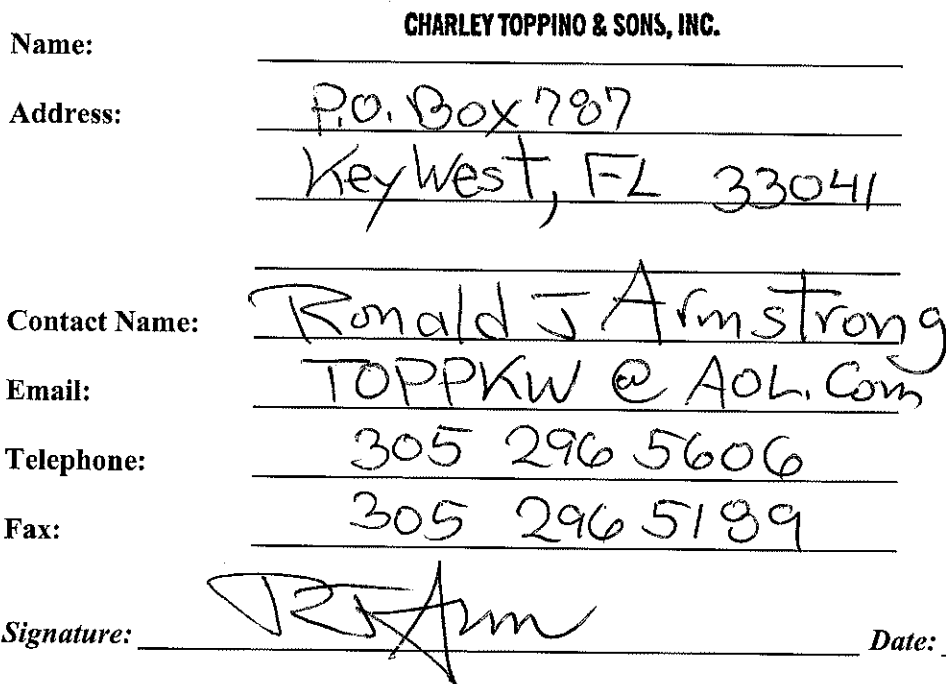 Name: CHARLEY TOPPINO & SONS, INC.
Address: P.O. Box 787
Key West, FL 33041
Contact Name: Ronald J Armstrong
Email: TOPPKW @ AOL.Com
Telephone: 305 296 5606
Fax: 305 296 5189
Signature: RJ Arm
Date: